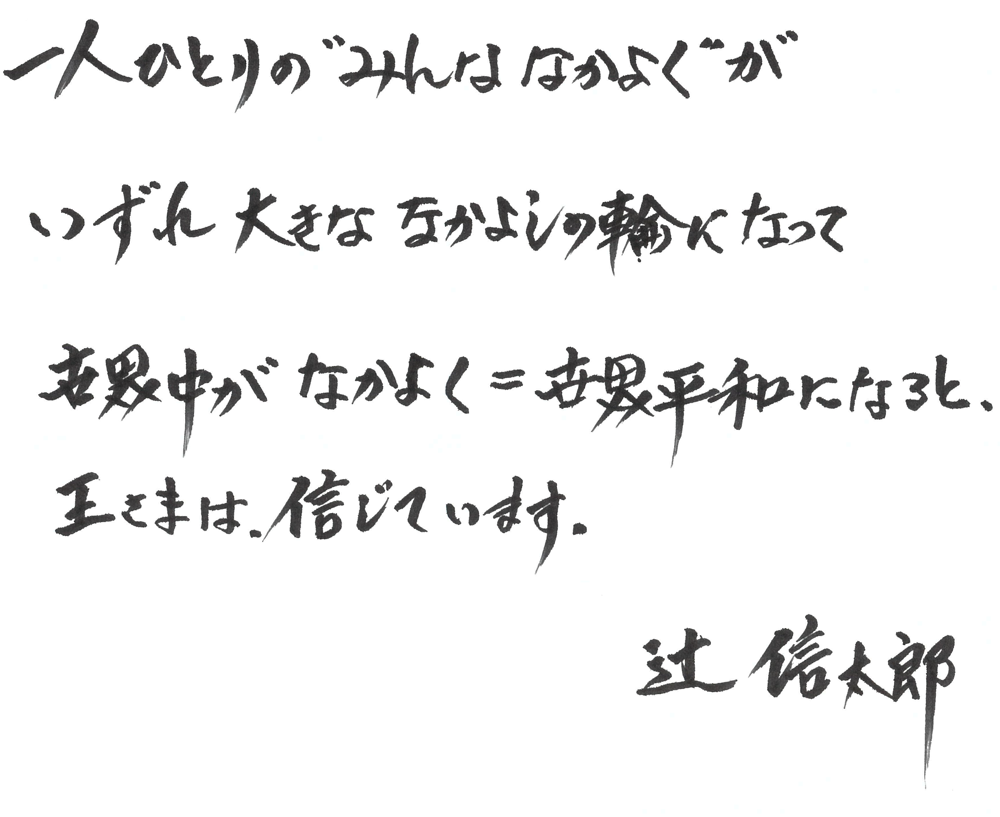 一人ひとりの"みんな なかよく"が
いずれ 大きな なかよしの輪になって
世界中が なかよく=世界平和になると、
王さまは、信じています。
辻 信太郎